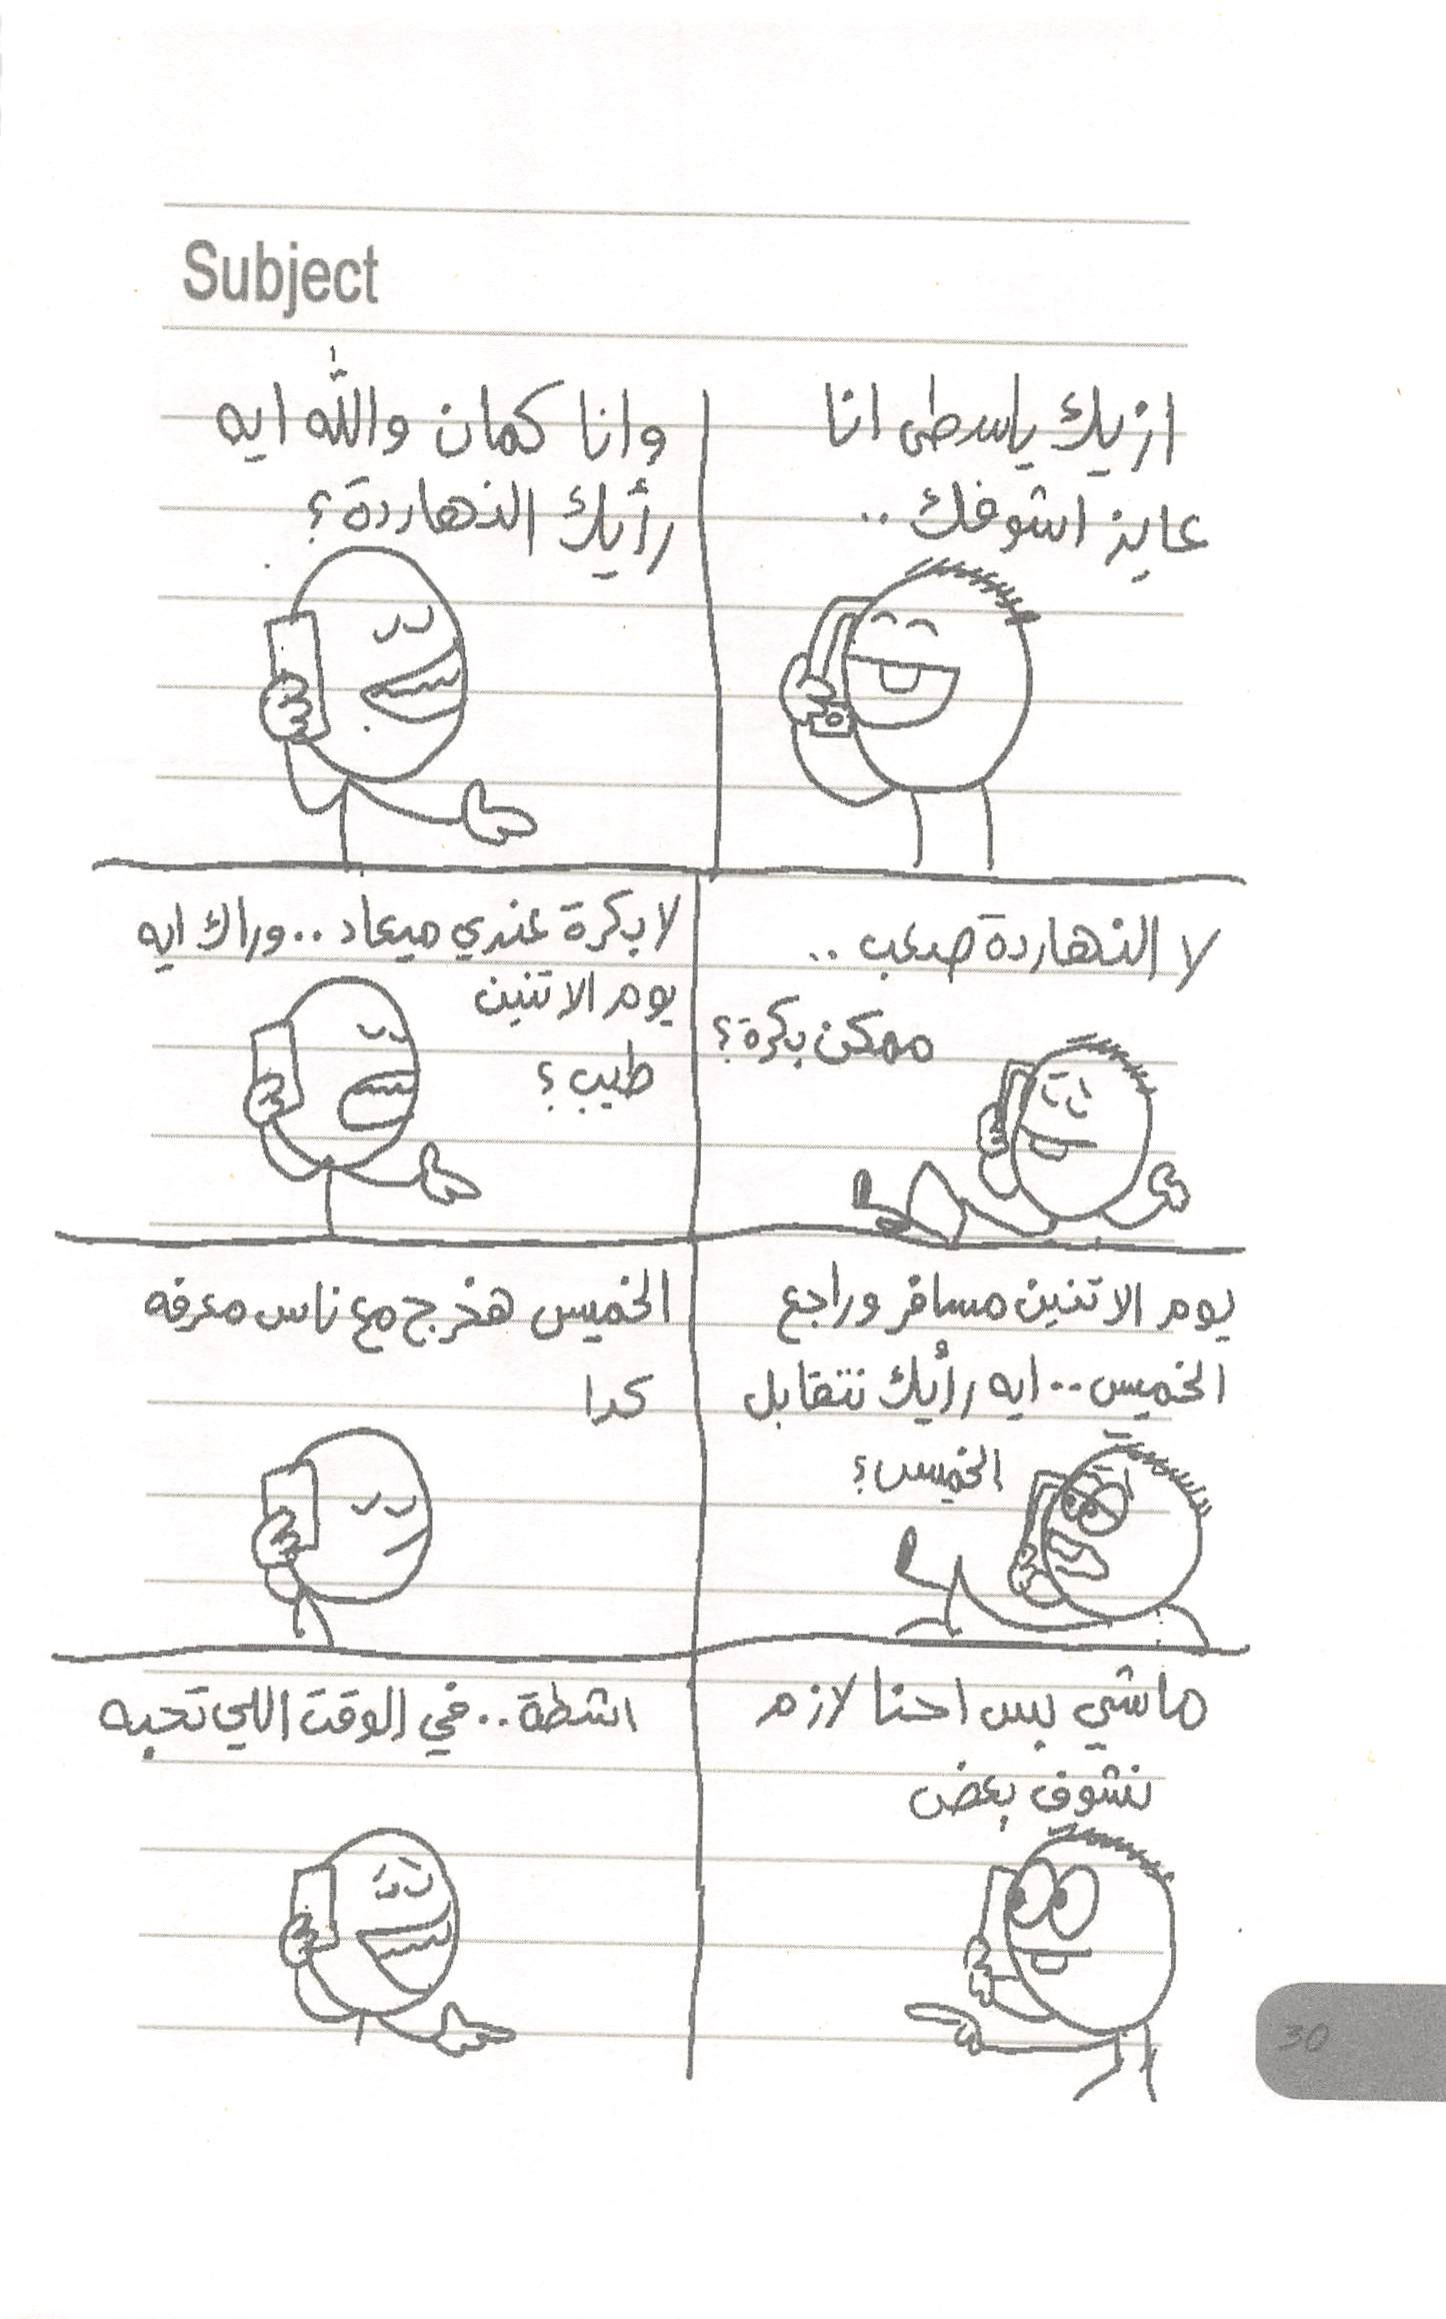 Subject
ازيك ياسطى انا
عايز اشوفك ..
وانا كمان والله ايه
رأيك النهاردة ؟
لا النهاردة صعب ..
ممكن بكرة ؟
لا بكرة عندي ميعاد .. وراك ايه
يوم الاتنين
طيب ؟
يوم الاتنين مسافر وراجع
الخميس .. ايه رأيك نتقابل
الخميس ؟
الخميس هخرج مع ناس معرفه
كدا
ماشي بس احنا لازم
نشوف بعض
اشطة .. في الوقت اللي تحبه
30